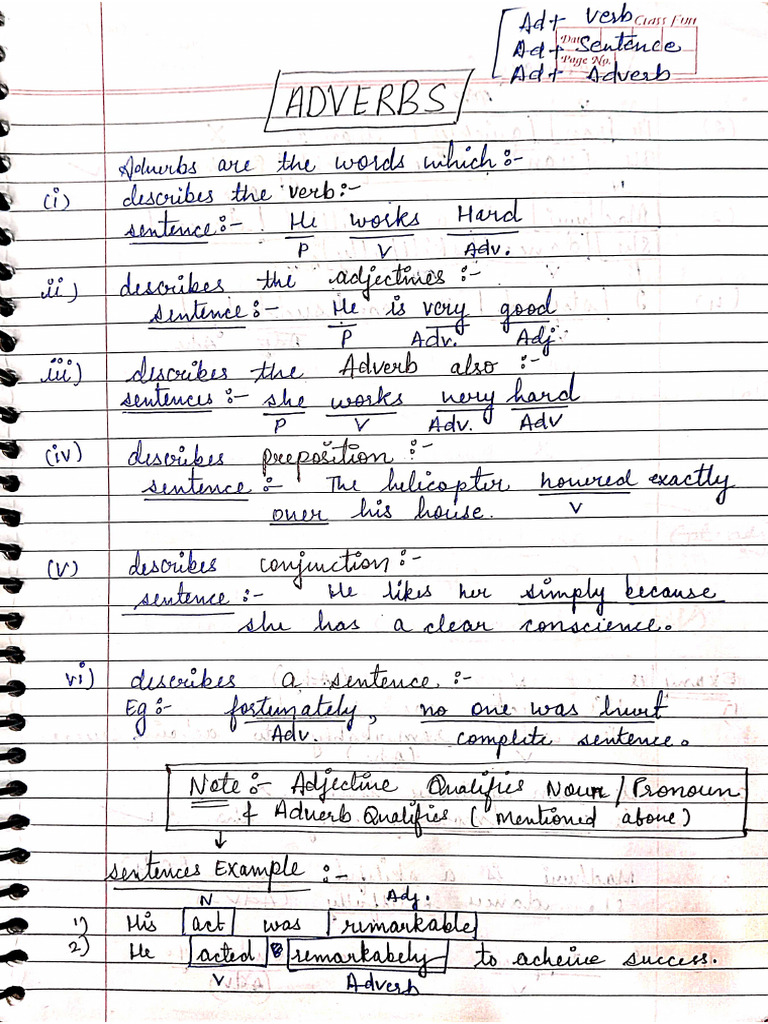 Ad+ Verb Class Fun
Ad+ Sentence
Page No.
Ad+ Adverb
ADVERBS
Adverbs are the words which :-
(i) describes the verb :-
sentence :- He works Hard
P V Adv.
ii) describes the adjectives :-
sentence :- He is very good
P Adv. Adj.
iii) describes the Adverb also :-
sentences :- she works very hard
P V Adv. Adv
(iv) describes preposition :-
sentence :- The helicopter hovered exactly
V
over his house.
(v) describes conjunction :-
sentence :- He likes her simply because
she has a clear conscience.
vi) describes a sentence :-
Eg :- fortunately, no one was hurt
Adv. complete sentence.
Note :- Adjective Qualifies Noun / Pronoun
& Adverb Qualifies ( Mentioned above )
↓
sentences Example :-
N Adj.
1) His act was remarkable
2) He acted remarkabely to acheive success.
V Adverb